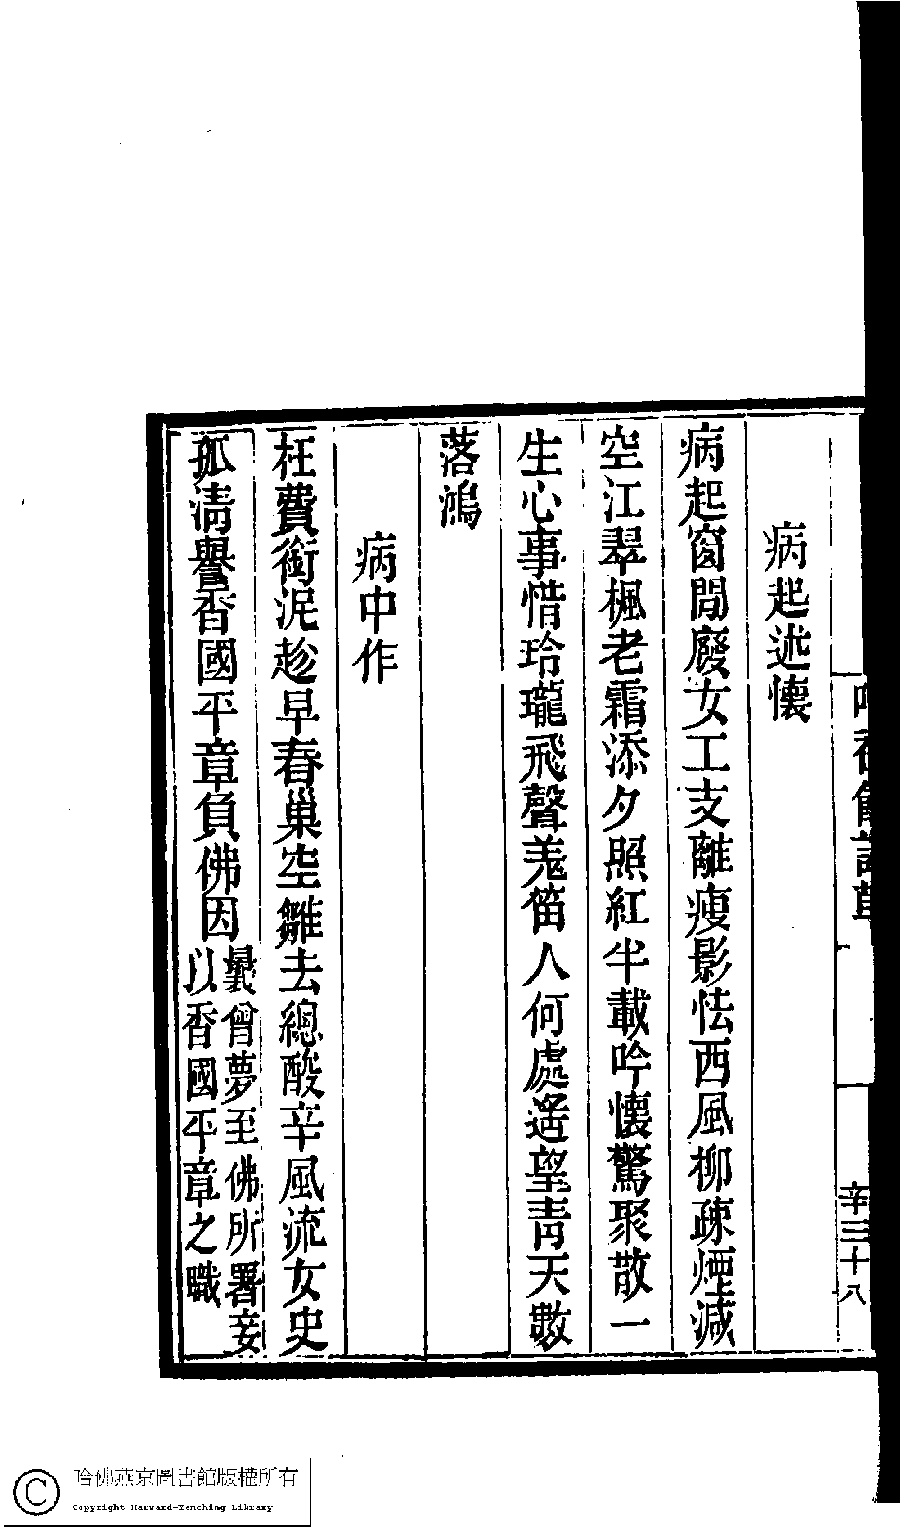 病起述懷
病起窗間廢女工支離瘦影怯西風柳疎煙減
空江翠楓老霜添夕照紅半載吟懷驚聚散一
生心事惜玲瓏飛聲羗笛人何處遙望青天數
落鴻
病中作
枉費銜泥趁早春巢空雛去總酸辛風流女史
孤清譽香國平章負佛因
曩曾夢至佛所署妾
以香國平章之職
辛三十八
哈佛燕京圖書館版權所有
Copyright Harvard-Yenching Library